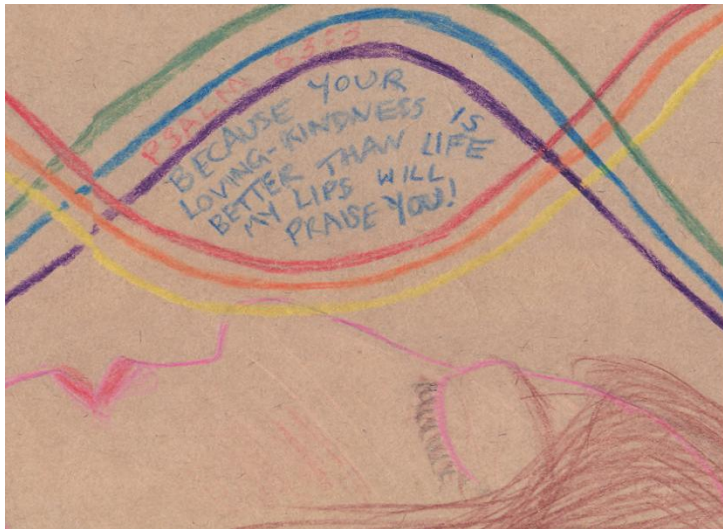 PSALM 63:3
BECAUSE YOUR
LOVING-KINDNESS IS
BETTER THAN LIFE
MY LIPS WILL
PRAISE YOU!